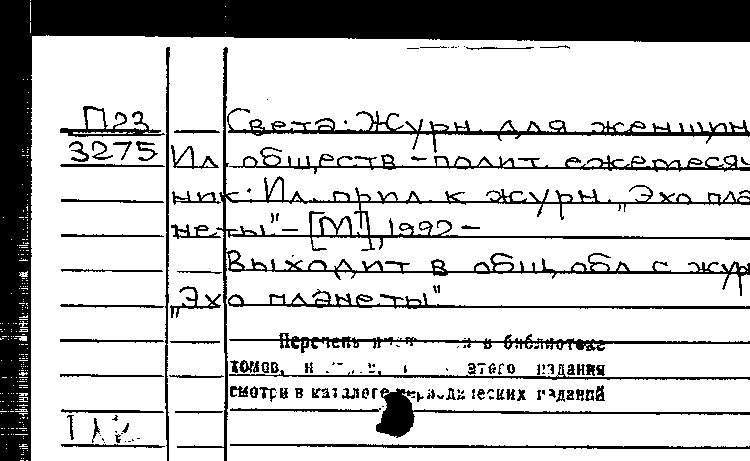 П23
3275
Света: Журн. для женщин
Ил. обществ.-полит. ежемесяч
ник: Ил. прил. к журн. „Эхо пла
неты" – [М.], 1992 –
Выходит в общ. обл. с жур
„Эхо планеты"
Перечень в библиотеке
томов, этого издания
смотри в каталоге периодических изданий